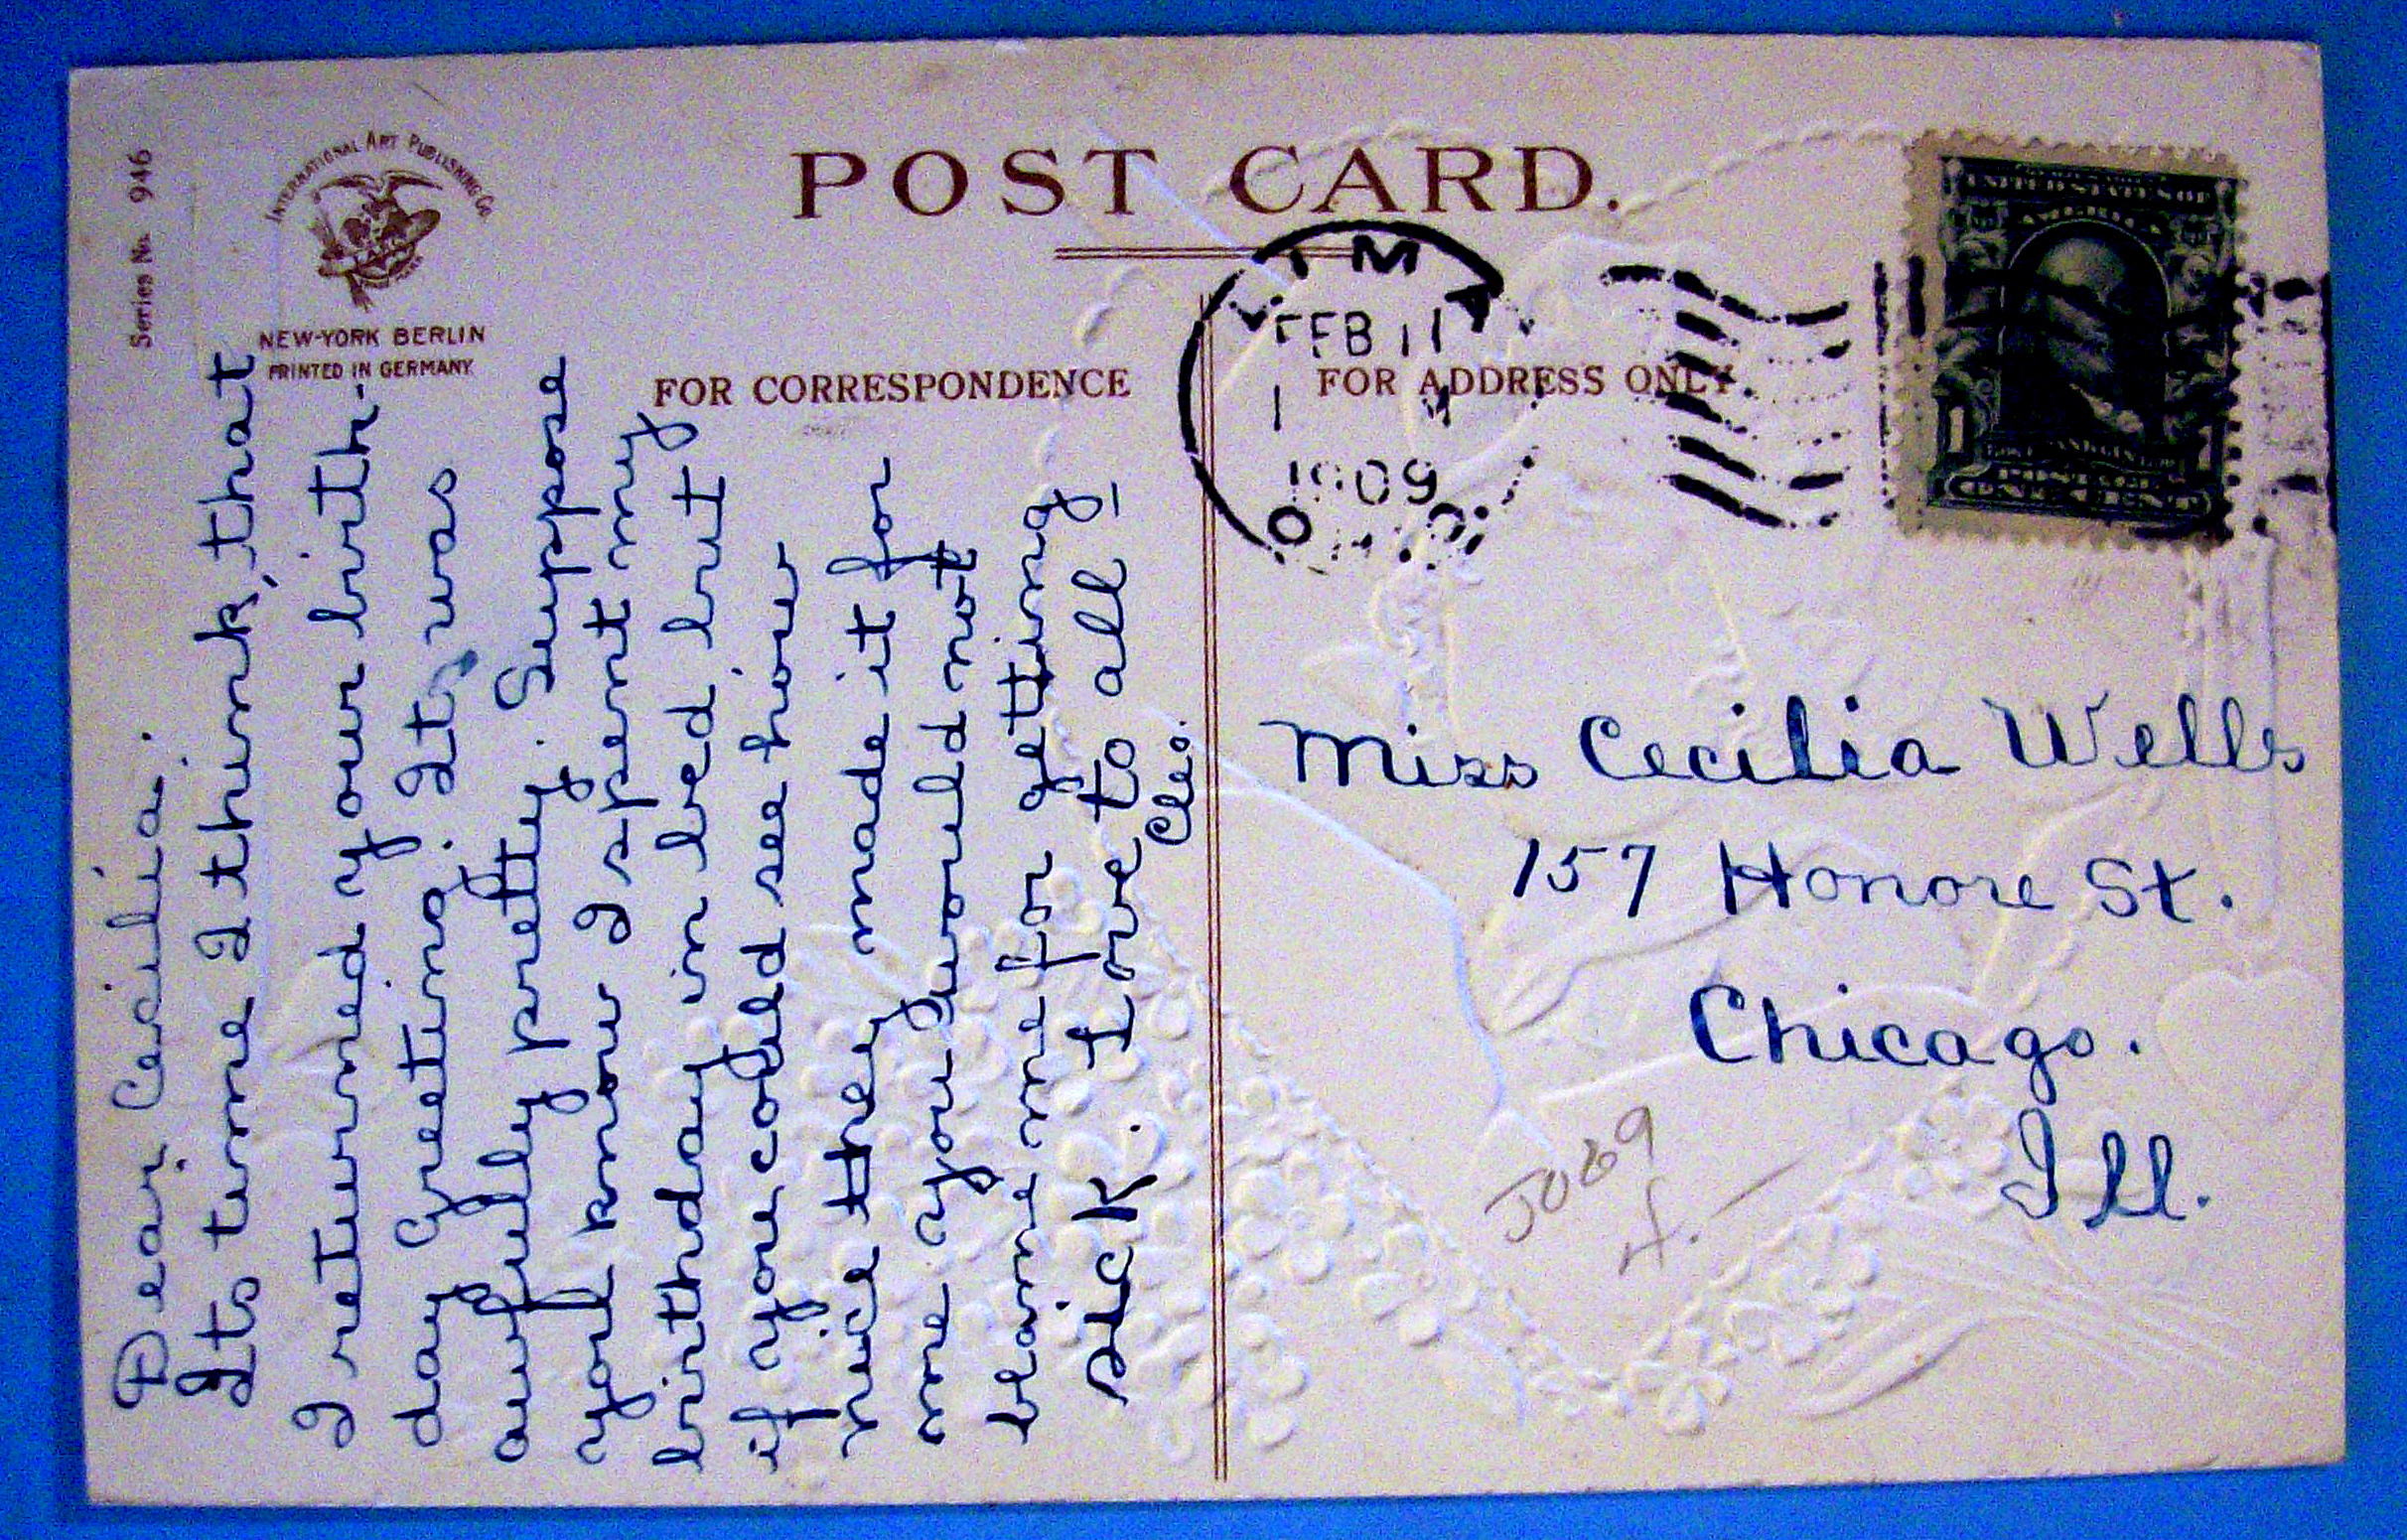 Series No. 946
INTERNATIONAL ART PUBLISHING Co
NEW-YORK BERLIN
PRINTED IN GERMANY
POST CARD.
FOR CORRESPONDENCE
FOR ADDRESS ONLY.
LIMA
FEB 11
1
1909
Dear Cecilia:
Its time I think, that
I returned your birth-
day Greeting. It, was
awfully pretty. Suppose
you know I spent my
birthday in bed but
if you could see how
nice they made it for
me you would not
blame me for getting
sick. Love to all -
Cleo.
Miss Cecilia Wells
157 Honore St.
Chicago.
Ill.
UNITED STATES OF
AMERICA
1 1
ONE CENT